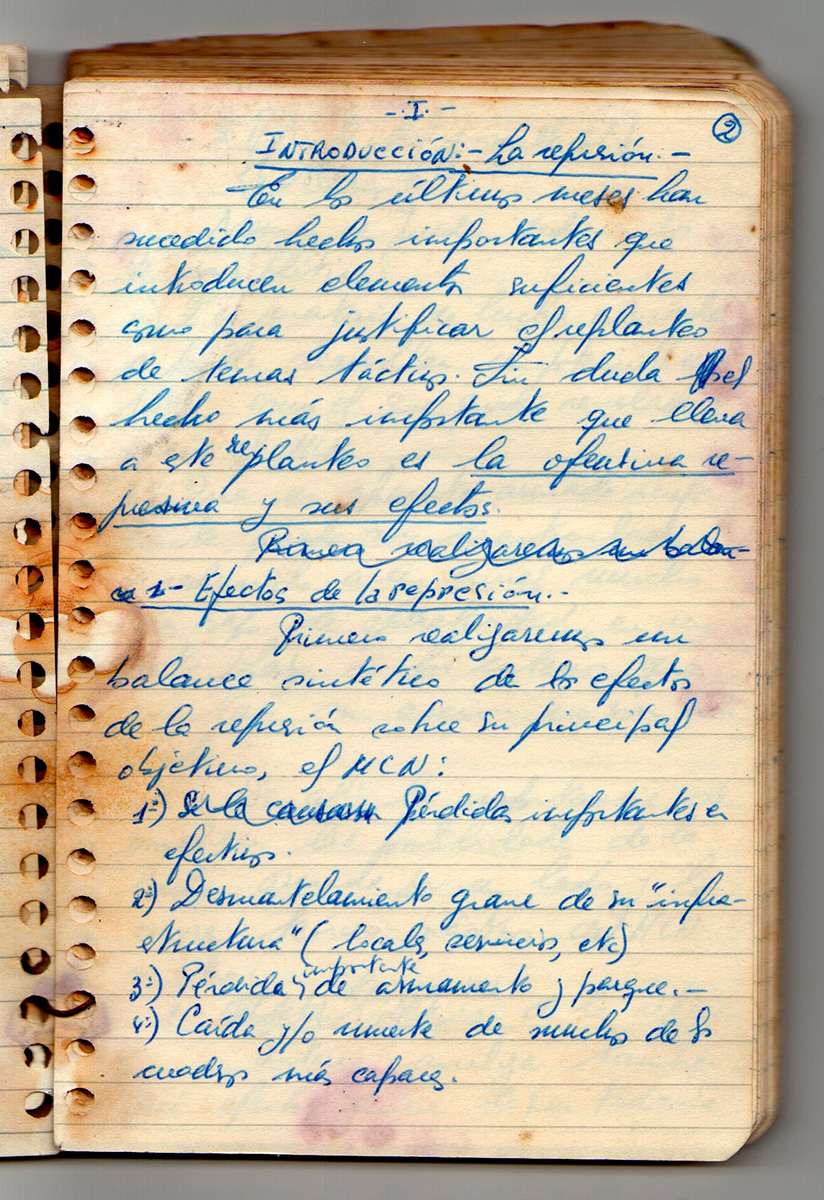 - I. -
2
INTRODUCCIÓN:- La represión.-
En los últimos meses han
sucedido hechos importantes que
introducen elementos suficientes
como para justificar el replanteo
de temas tácticos. Sin duda el
hecho más importante que lleva
a este replanteo es la ofensiva re-
presiva y sus efectos.
Primero realizaremos un balan-
ce 1- Efectos de la represión.-
Primero realizaremos un
balance sintético de los efectos
de la represión sobre su principal
objetivo, el MLN:
1º) Pérdidas importantes en
efectivos.
2º) Desmantelamiento grave de su "infra-
estructura" (locales, servicios, etc)
3º) Pérdida importante de armamento y parque.-
4º) Caída y/o muerte de muchos de los
cuadros más capaces.